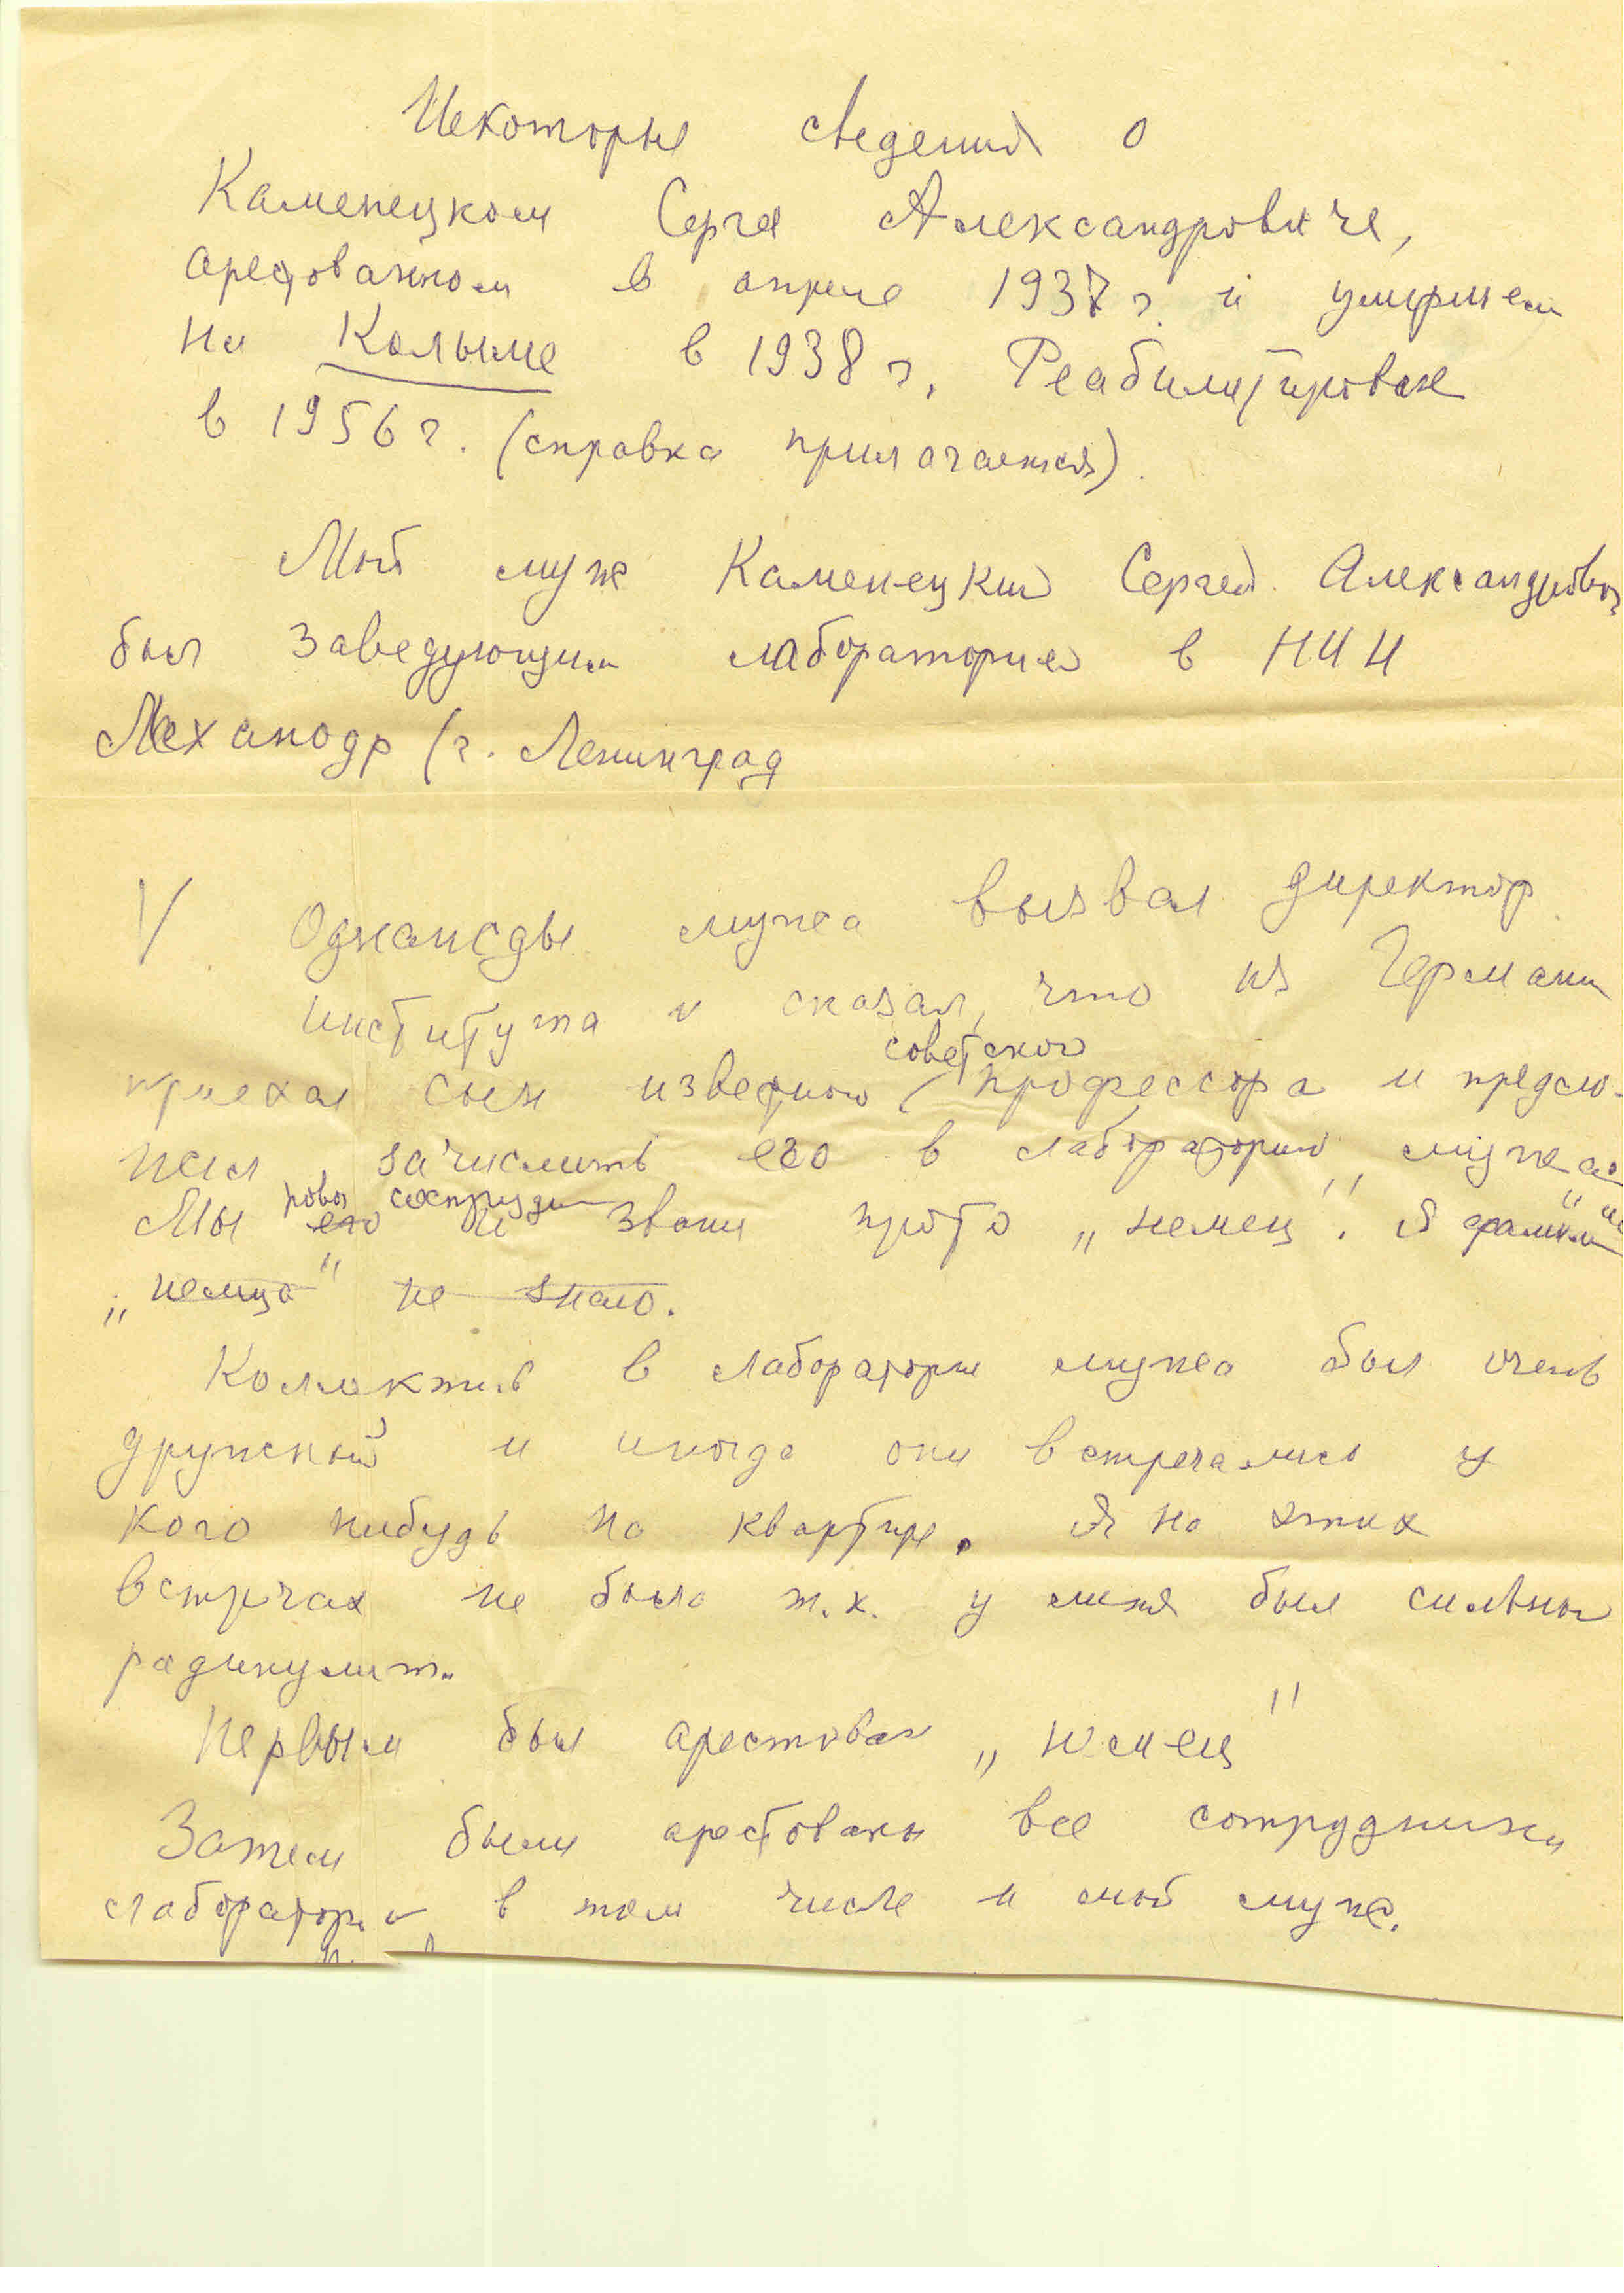 Некоторые сведения о
Каменецком Сергее Александровиче,
арестованном в апреле 1937 г. и умершем
на Колыме в 1938 г. Реабилитирован
в 1956 г. (справка прилагается).
Мой муж Каменецкий Сергей Александрович
был заведующим лабораторией в НИИ
Механобр (г. Ленинград
V Однажды мужа вызвал директор
института и сказал, что из Германии
советского
приехал сын известного профессора и предло-
жил зачислить его в лабораторию мужа.
нового сотрудника
Мы его и звали просто „немец". Я фамилии
„немца" не знаю.
Коллектив в лаборатории мужа был очень
дружный и иногда они встречались у
кого нибудь на квартире. Я на этих
встречах не была т.к. у меня был сильный
радикулит.
Первым был арестован „немец"
Затем были арестованы все сотрудники
лаборатории в том числе и мой муж.